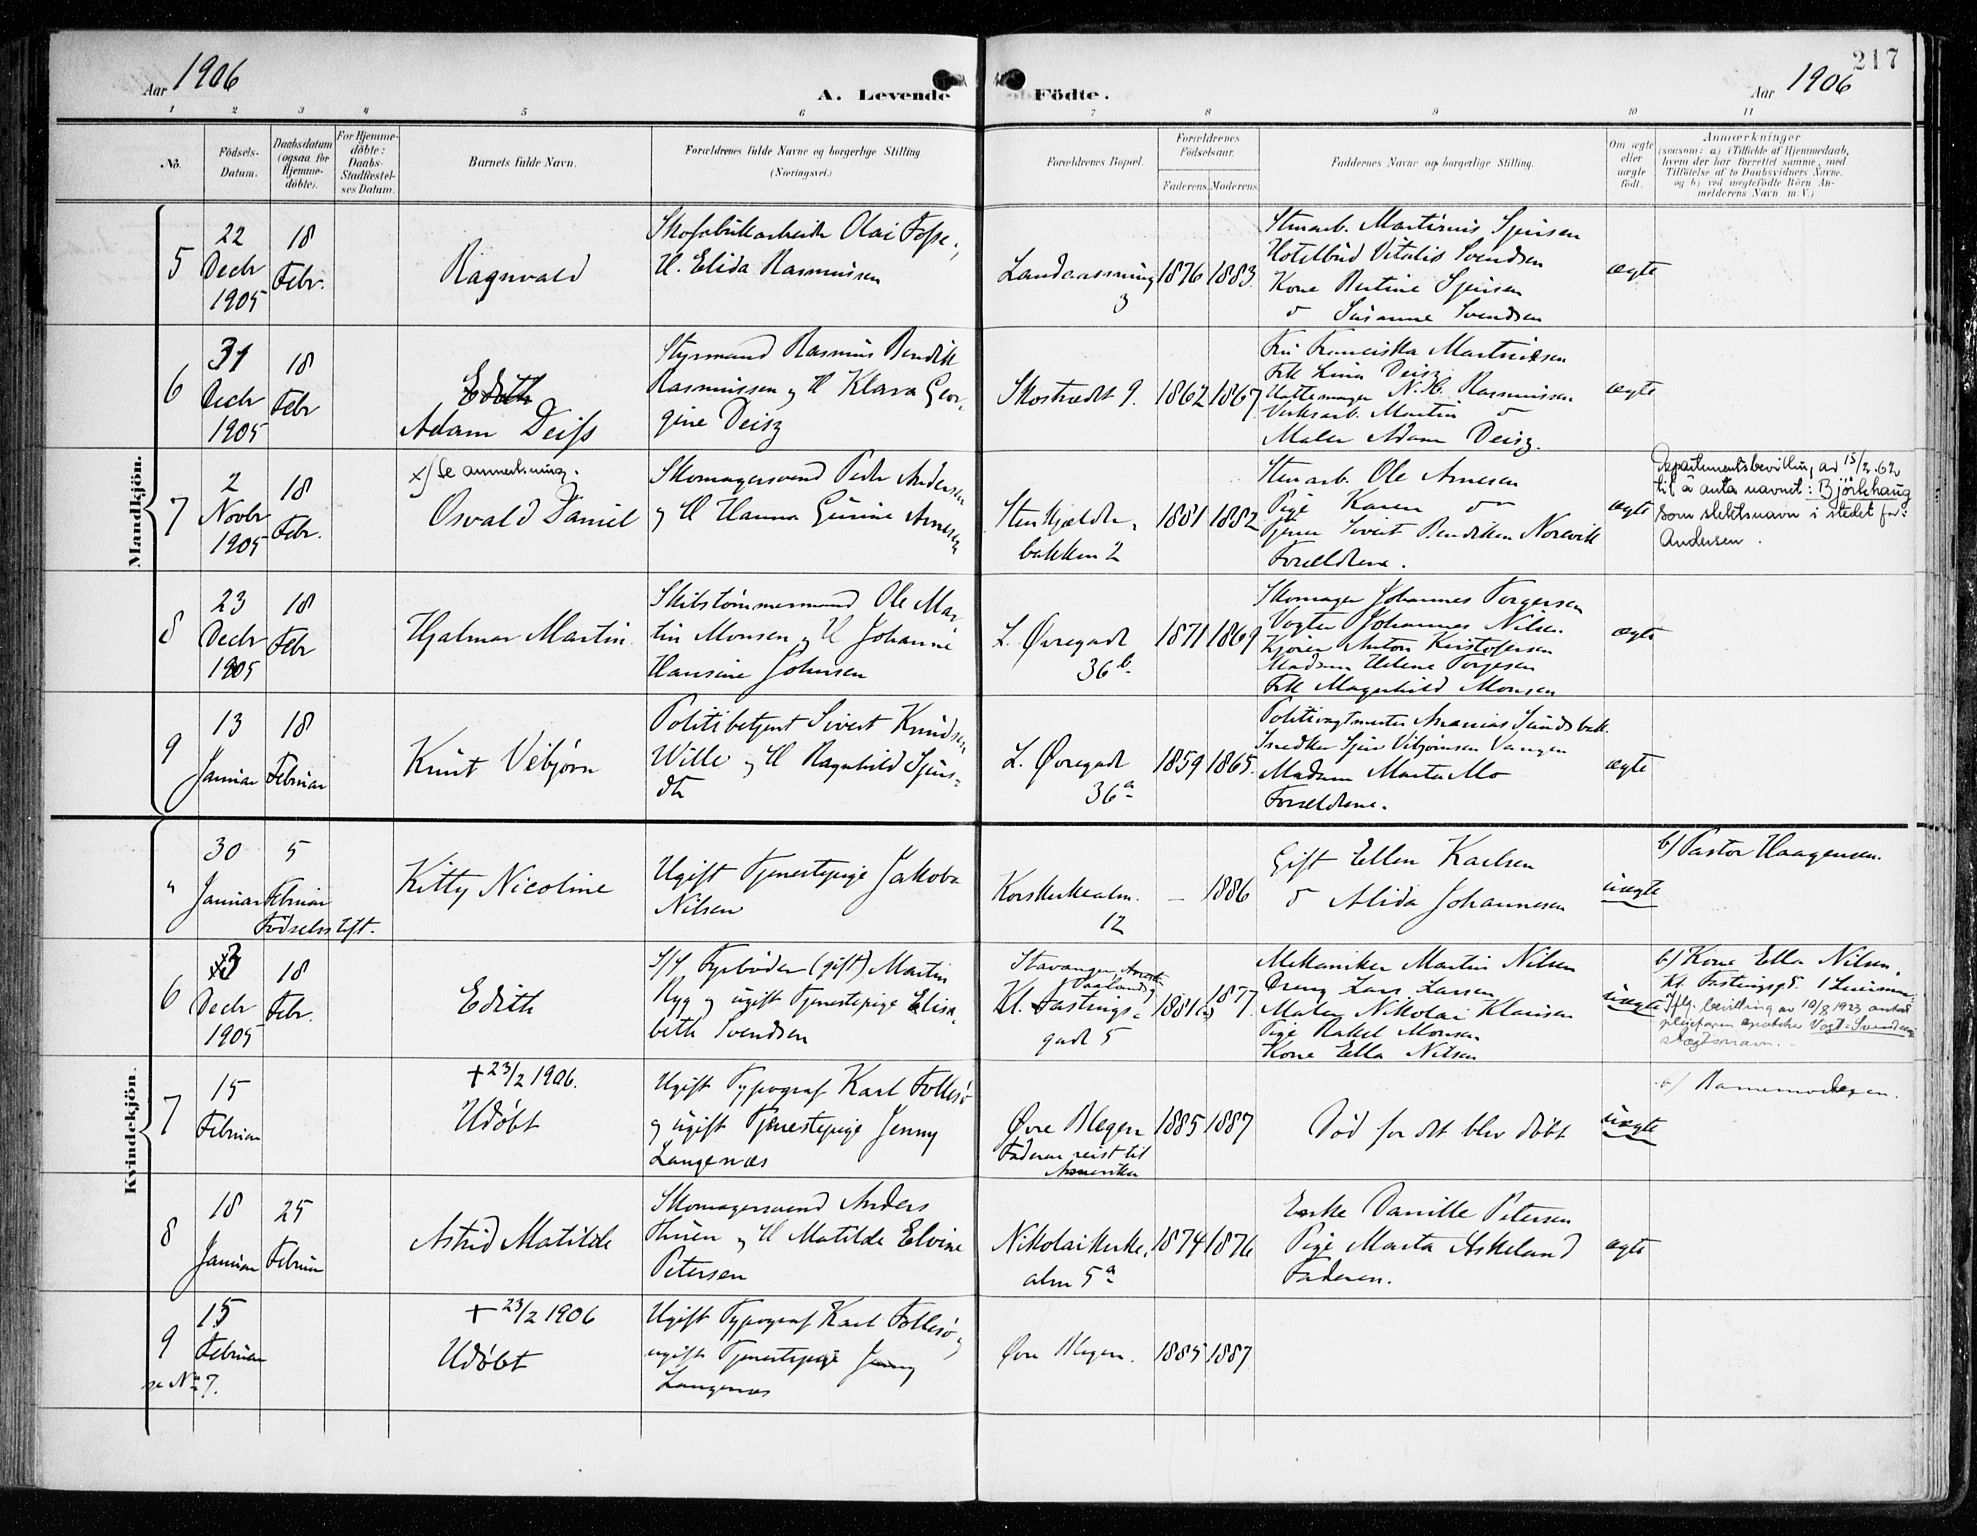 217
Aar 1906
A. Levende Födte.
Aar 1906
1 2 3 4 5 6 7 8 9 10 11
No.
Födsels-
Datum.
Daabsdatum
(ogsaa for
Hjemme-
döbte).
For Hjemme-
döbte:
Daabs-
Stadfæstel-
ses Datum.
Barnets fulde Navn.
Forældrenes fulde Navne og borgerlige Stilling
(Næringsvei.)
Forældrenes Bopæl.
Forældrenes
Födselsaar.
Faderens. Moderens.
Faddernes Navne og borgerlige Stilling.
Om ægte
eller
uægte
födt.
Anmærkninger
(saasom: a) i Tilfælde af Hjemmedaab,
hvem der har forrettet samme, med
Tilföielse af to Daabsvidners Navne,
og b) ved uægtefödte Börn An-
melderens Navn m. V.)
Mandkjön.
5
22
Decbr
1905
18
Febr.
Ragnvald
Skofabrikarbeider Olai Fosse,
H. Elida Rasmussen
Landaassving
3
1876
1883.
Stenarb. Martinius Sjursen
Hotelbud Vitalis Svendsen
Kone Bertine Sjursen
o Susanne Svendsen
ægte
6
31
Decbr
1905
18
Febr
Edith
Adam Deiss
Styrmand Rasmus Bendik
Rasmussen og H Klara Geor-
gine Deisz
Skostrædet 9.
1862
1867
Fru Franciska Martinissen
Frk Lina Deisz
Hattemager N. B. Rasmussen
Verksarb. Martin o
Maler Adam Deisz.
ægte
7
2
Novbr
1905
18
Febr.
x/ se anmerkning.
Osvald Daniel
Skomagersvend Peder Andersen
og H Hanna Gurine Arnesen
Stenkjelder-
bakken 2
1881
1882
Stenarb. Ole Arnesen
Pige Karen o
Tjener Sivert Bendiksen Norevik
Forældrene.
ægte
Departementsbevilling av 15/2.62
til å anta navnet: Björkhaug
som slektsnavn i stedet for:
Andersen.
8
23
Decbr
1905
18
Febr
Hjalmar Martin
Skibstømmermand Ole Mar-
tin Monsen og H Johanne
Hansine Johnsen
L. Øvregade
36 b.
1871
1869
Skomager Johannes Torgersen
Vogter Johannes Nilsen
Kjører Anton Kristofersen
Madam Helene Torgesen
Frk Magnhild Monsen
ægte
9
13
Januar
18
Februar
Knut Vebjørn
Politibetjent Sivert Knudsen
Wille og H Ragnhild Sjurs-
dtr
L. Øvregade
36 a
1859
1865.
Politivagtmester Ananias Sundsbak.
Snedker Sjur Vibjørnsen Vangen
Madam Marta Mo
Forældrene.
ægte
Kvindekjön.
"
30
Januar
5
Februar
Fødselsstift.
Kitty Nicoline
Ugift Tjenestepige Jakoba
Nilsen
Korskirkealm.
12
–
1886
Gift Ellen Karlsen
o Alida Johannesen
uægte
b) Pastor Haagensen.
6
3
Decbr
1905
18
Febr.
Edith
S/S Fyrbøder (gift) Martin
Ryg og ugift Tjenestepige Elisa-
beth Svendsen
Stavanger,
Kl. Fastings-
gade 5
1881
1877.
Mekaniker Martin Nilsen
Dreng Lars Larsen
Maler Nikolai Klausen
Pige Rakel Monsen
Kone Ella Nilsen
uægte
b) Kone Ella Nilsen,
Kl. Fastingsgd.
Iflg. bevilling av 10/8 1923 antat
plejefaren apoteker Vogt-Svendsens
slægtsnavn.
7
15
Februar
+ 23/2 1906.
Udøbt
Ugift Typograf Karl Follesø
og ugift Tjenestepige Jenny
Langenæs
Øvre Blegen
Faderen reist til
Amerika
1885
1887
Død før det blev døbt
uægte
b) Barnemoderen.
8
18
Januar
25
Februar
Astrid Matilde
Skomagersvend Anders
Thuen og H Matilde Elvine
Petersen
Nikolaikirke-
alm 5 a
1874
1876
Enke Danille Petersen
Pige Marta Askeland
Faderen.
ægte
9
15
Februar
se No 7.
+ 23/2 1906
Udøbt
Ugift Typograf Karl Follesø og
ugift Tjenestepige Jenny
Langenæs
Øvre Blegen.
1885
1887